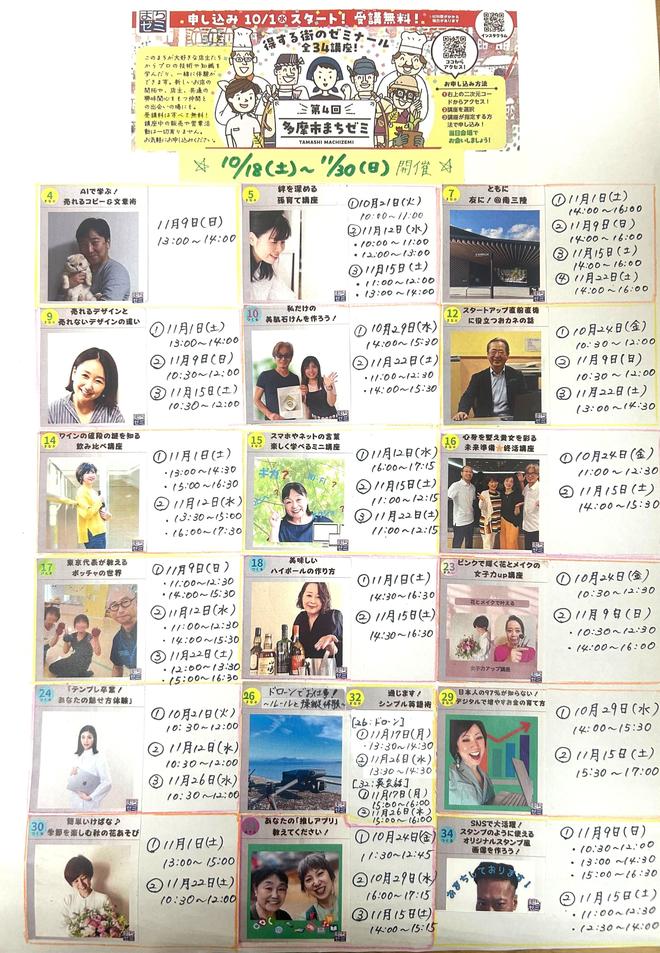 まちゼミ
申し込み 10/1㊌スタート！受講無料！
得する街のゼミナール
全34講座！
このまちが大好きな店主たち
からプロの技術や知識も
学んだり、一緒に体験が
できます。
受講料はすべて無料！
お気軽にお申し込みください。
第4回
多摩市まちゼミ
TAMASHI MACHIZEMI
インスタグラム
ココから
アクセス！
お申し込み方法
①右上の二次元コー
ドからアクセス！
②講座を選択
③講座が指定する方
法で申し込み！
当日会場で
お会いしましょう！
☆ 10/18(土)〜11/30(日) 開催 ☆
4
AIで学ぶ！
売れるコピー&文章術
11月9日(日)
13:00〜14:00
5
絆を深める
孫育て講座
①10月21日(火)
10:00〜11:00
②11月12日(水)
・10:00〜11:00
・12:00〜13:00
③11月15日(土)
・11:00〜12:00
・13:00〜14:00
7
ともに
友に！@南三陸
①11月1日(土)
14:00〜16:00
②11月9日(日)
14:00〜16:00
③11月15日(土)
14:00〜16:00
④11月22日(土)
14:00〜16:00
9
売れるデザインと
売れないデザインの違い
①11月1日(土)
13:00〜14:00
②11月9日(日)
10:30〜12:00
③11月15日(土)
10:30〜12:00
10
私だけの
美肌石けんを作ろう！
①10月29日(水)
14:00〜15:30
②11月22日(土)
・11:00〜12:30
・14:00〜15:30
12
スタートアップ直前直後
に役立つおカネの話
①10月24日(金)
10:30〜12:00
②11月9日(日)
10:30〜12:00
③11月22日(土)
13:00〜14:30
14
ワインの値段の謎を知る
飲み比べ講座
①11月1日(土)
・13:00〜14:30
・15:00〜16:30
②11月12日(水)
・13:30〜15:00
・16:00〜17:30
15
スマホやネットの言葉
楽しく学べるミニ講座
ギガ？
Wi-Fi？
①11月12日(水)
16:00〜17:15
②11月15日(土)
11:00〜12:15
③11月22日(土)
11:00〜12:15
16
心身を整え貴女を彩る
未来準備★終活講座
①10月24日(金)
11:00〜12:30
②11月15日(土)
14:00〜15:30
17
東京代表が教える
ボッチャの世界
①11月9日(日)
・11:00〜12:30
・14:00〜15:30
②11月12日(水)
・11:00〜12:30
・14:00〜15:30
③11月22日(土)
・12:00〜13:30
・15:00〜16:30
18
美味しい
ハイボールの作り方
①11月1日(土)
14:30〜16:30
②11月15日(土)
14:30〜16:30
23
ピンクで輝く花とメイクの
女子力up講座
花とメイクで叶える
女子力アップ講座
①10月24日(金)
10:30〜12:30
②11月9日(日)
・10:30〜12:30
・14:00〜16:00
24
「テンプレ卒業！
あなたの魅せ方体験」
①10月21日(火)
10:30〜12:00
②11月12日(水)
10:30〜12:00
③11月26日(水)
10:30〜12:00
26
ドローンでお仕事！
〜ルールと操縦体験〜
32
通じます！
シンプル英語術
[26:ドローン]
①11月17日(月)
・13:30〜14:30
②11月26日(水)
13:30〜14:30
[32:英会話]
①11月17日(月)
15:00〜16:00
②11月26日(水)
15:00〜16:00
29
日本人の97%が知らない！
デジタルで増やすお金の育て方
①10月29日(水)
14:00〜15:30
②11月15日(土)
15:30〜17:00
30
簡単いけばな♪
季節を楽しむ秋の花あそび
①11月1日(土)
13:00〜15:00
②11月22日(土)
10:30〜12:00
あなたの「推しアプリ」
教えてください！
①10月24日(金)
11:30〜12:45
②10月29日(水)
16:00〜17:15
③11月15日(土)
14:00〜15:15
34
SNSで大活躍！
スタンプのように使える
オリジナルスタンプ風
画像を作ろう！
おまちしております！
①11月9日(日)
・10:30〜12:00
・13:00〜14:30
・15:00〜16:30
②11月15日(土)
・11:00〜12:30
・12:30〜14:00